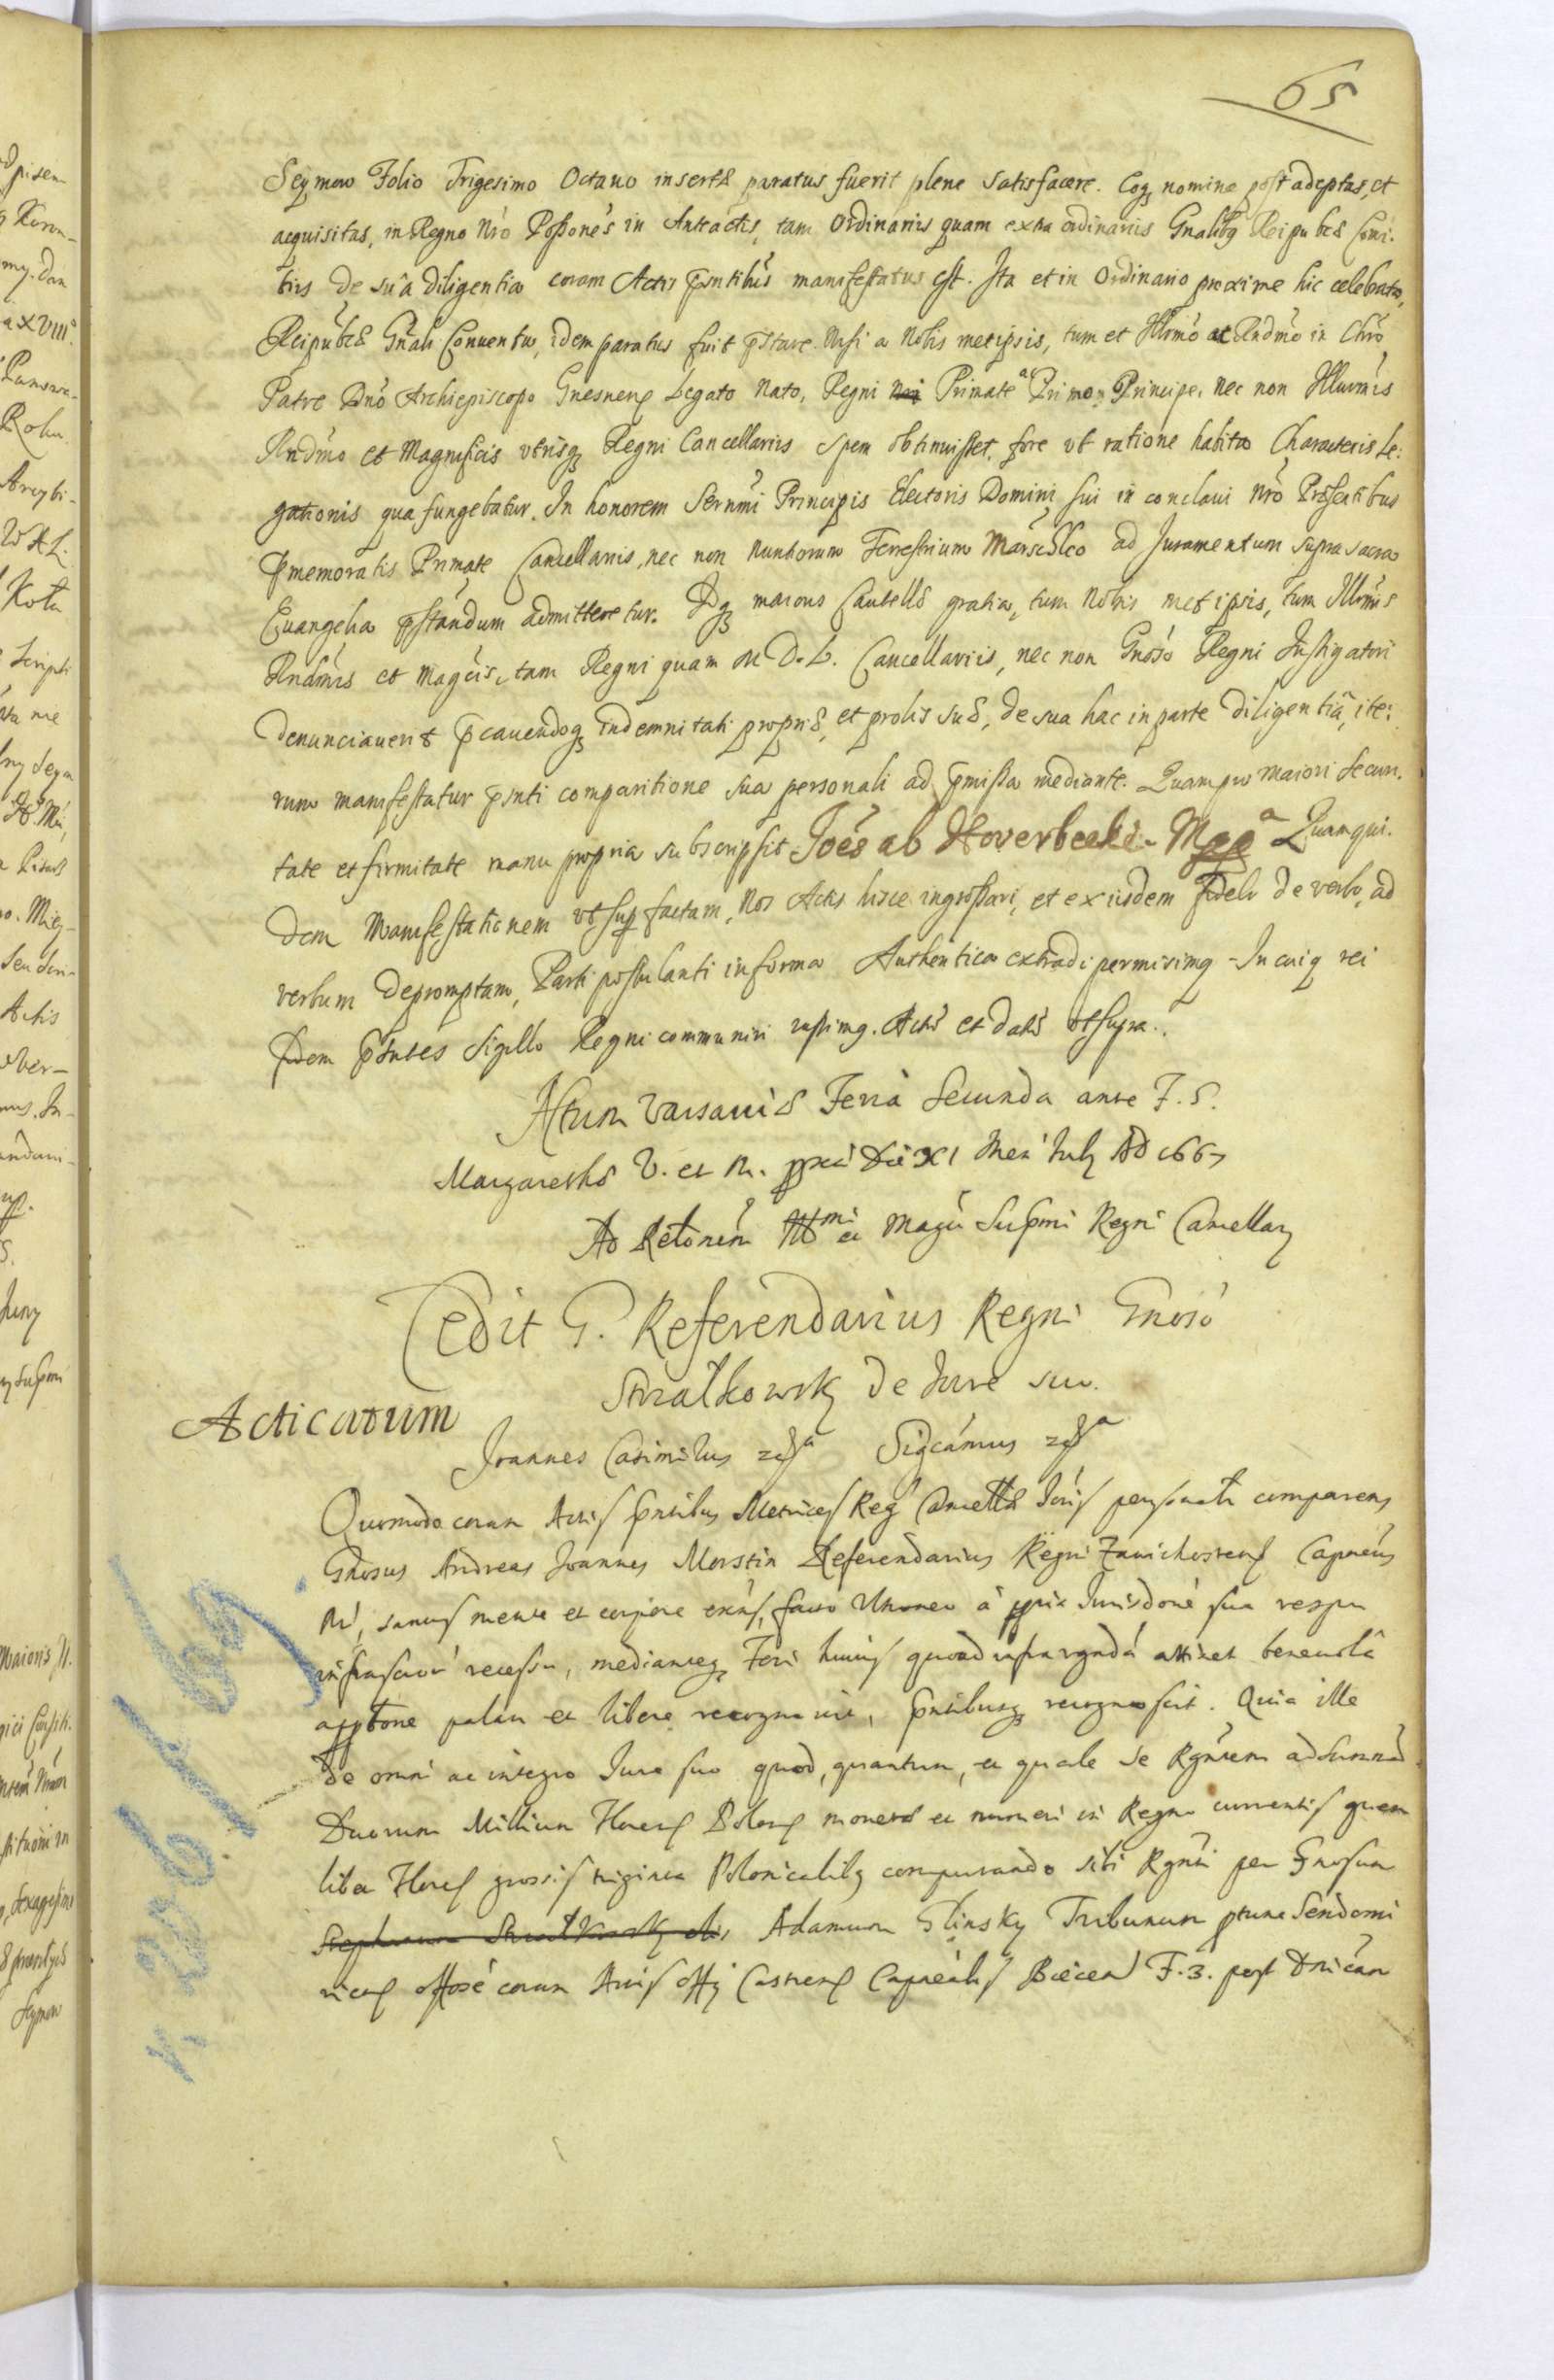 65
Seymow Folio Trigesimo Octauo insertæ paratus fuerit plene satisfacere. Eoq; nomine post adeptas, et
acquisitas, in Regno Nro Possones in Anteactis, tam Ordinariis quam extra ordinariis Gnalibq Reipubcæ Comi:
tiis de suâ diligentia coram Actis pntibus manifestatus est. Ita et in Ordinario proxime hic celebrato,
Reipubcæ Gnali Conuentu, idem paratus fuit pstare. Nisi a Nobis metipsis, tum et Illrmo ac Rndmo in Chro
Patre Dno Archiepiscopo Gnesnen Legato Nato, Regni Primate ac Primo Principe, nec non Illurmis
Rndmo et Magnificis vtrisq; Regni Cancellariis spem obtinuisset, fore vt ratione habita Characteris Le:
gationis qua fungebatur. In honorem Sernmi Principis Electoris Domini sui in conclaui nro Præsentibus
pmemoratis Primate Cancellariis, nec non Nuntiorum Terrestrium Marschalco ad Juramentum supra sacra
Euangelia pstandum admitteretur. Idq; maioris Cautellæ gratia, tum Nobis metipsis, tum Illrmis
Rndmis et Magcis, tam Regni quam M. D. L. Cancellariis, nec non Gnoso Regni Instigatori
denunciauerit pcauendoq; indemnitati propriæ, et prolis suæ, de sua hac in parte diligentiâ, ite:
rum manifestatur psnti comparitione sua personali ad pmissa mediante. Quam pro maiori securi:
tate et firmitate manu propria subscripsit Joes ab Hoverbecke. Mppa Quamqui:
dem Manifestationem vt sup factam, Nos Actis hisce ingrossari, et ex iisdem fideli de verbo, ad
verbum depromptam, Parti postulanti in forma Authentica extradi permisimq - In cuiq rei
fidem psentes Sigillo Regni communiri iussimq. Actū et datū vt supra.
Actum Varsauiæ Feria Secunda ante F. S.
Margarethæ V. et M. Die XI Men Julÿ AD 1667
Ad Retonem Illmi et Magci Supmi Regni Cancellarÿ
Cedit G. Referendarius Regni Gnoso
Strzałkowskÿ de Jure suo.
Acticatum
Joannes Casimirus Sigcamus
Quomodo coram Actis pntibus Metrices Reg Cancellæ personalr comparens
Gnosus Andreas Joannes Morstin Referendarius Regni Zawichosten Capneus
Nr, sanus mente et corpore exns, facto a ppria Jurisdone sua respu
infrascrti recessu, medianteq; Fori huius quoad infra attinet beneuola
apptone palam et libere recognouit, pntibusq; recognoscit. Quia ille
de omni ac integro Jure suo quod, quantum, et quale se Rgntem ad summā
Duorum Millium Floren Polon monetæ et numeri in Regno currentis quem
libet Floren grossis triginta Polonicalibq computando sibi Rgnti per Gnosum
Adamum Glinsky Tribunum ptunc Sendomi
rien coram Actis Offÿ Castren Capnealis Biecen F. 3. post Dnicam